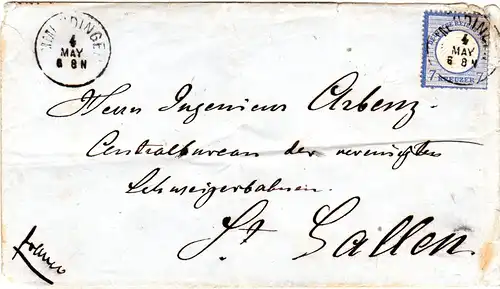 4
MAY
6 8 N
4
MAY
6 8 N
7 KREUZER 7
Herrn Ingenieur Arbenz
Centralbureau der vereinigten
Schweizerbahnen
St Gallen
franco